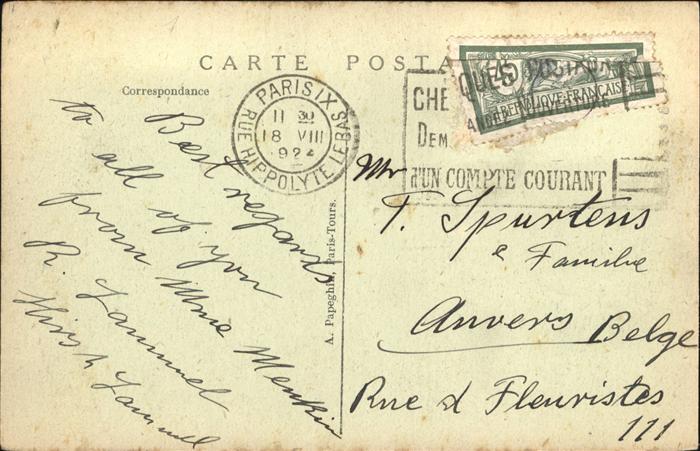 CARTE POSTA
Correspondance
PARIS IX
11 30
18 VIII
924
RUE HIPPOLYTE LEBAS
45
REPUBLIQUE FRANCAISE
CHE QUES POSTAUX
DEM
D'UN COMPTE COURANT
Best regards
to all of you
from Mme
R.
A. Papeghin, Paris-Tours.
Mr
T. Spurtens
e Familie
Anvers Belge
Rue d Fleuristes
111